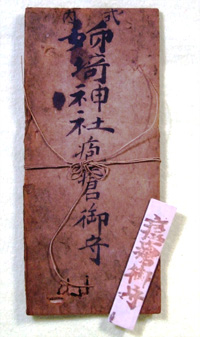 式内
姉埼神社疱瘡御守
疱瘡御守